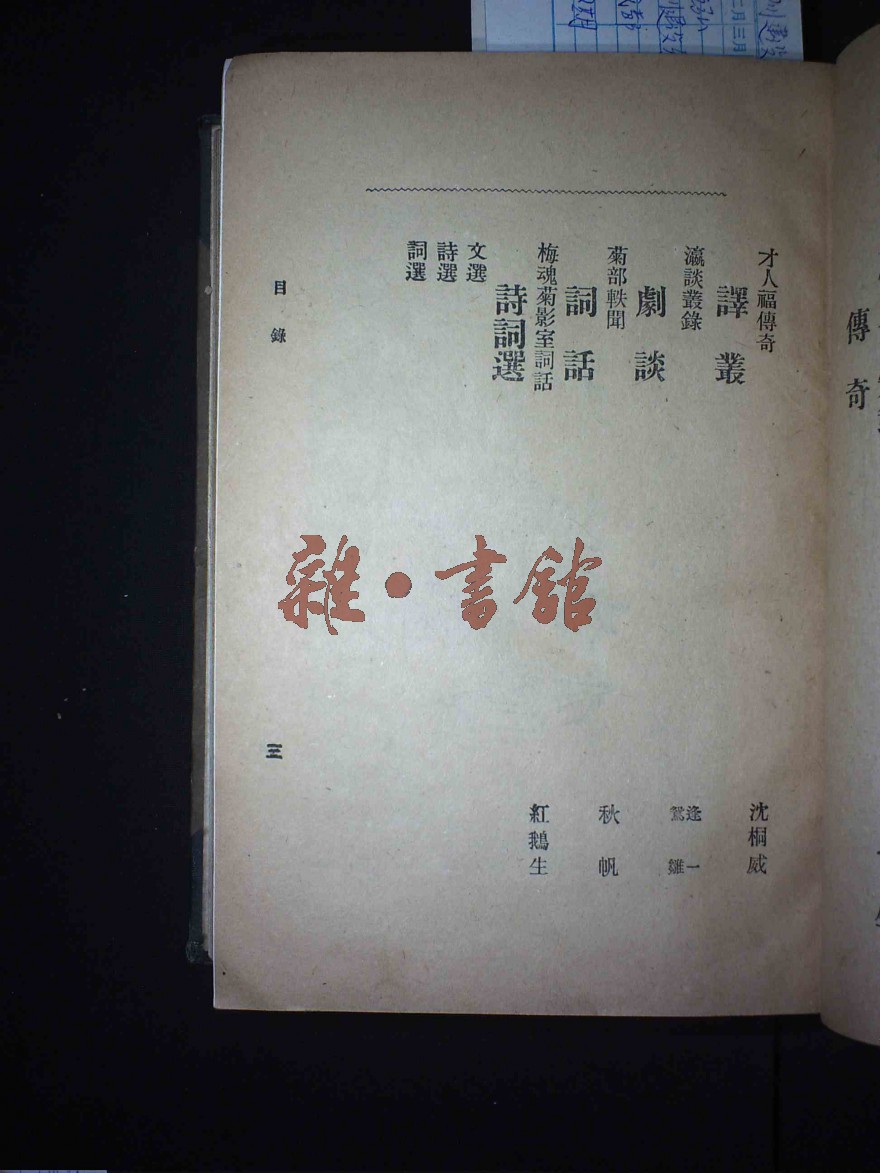 傳奇
才人福傳奇 沈桐威
譯叢
瀛談叢錄 逢一 鴛雛
劇談
菊部軼聞 秋帆
詞話
梅魂菊影室詞話 紅鵝生
詩詞選
文選
詩選
詞選
目錄
三
雜·書館